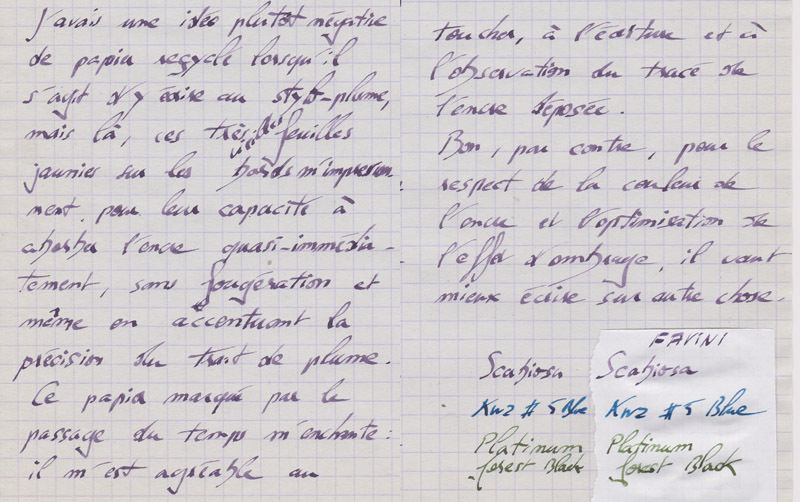 J'avais une idée plutôt négative
de papier recyclé lorsqu'il
s'agit d'y écrire au stylo-plume,
mais là, ces très feuilles
jaunies sur les bords m'impression
nent pour leur capacité à
absorber l'encre quasi-immédia-
tement, sans fougération et
même en accentuant la
précision du trait de plume.
Ce papier marqué par le
passage du temps m'enchante :
il m'est agréable au
toucher, à l'écriture et à
l'observation du tracé de
l'encre déposée.
Bon, par contre, pour le
respect de la couleur de
l'encre et l'optimisation de
l'effet d'ombrage, il vaut
mieux écrire sur autre chose.
FAVINI
Scabiosa Scabiosa
Kwz # 5 Blue Kwz # 5 Blue
Platinum Platinum
forest Black forest Black